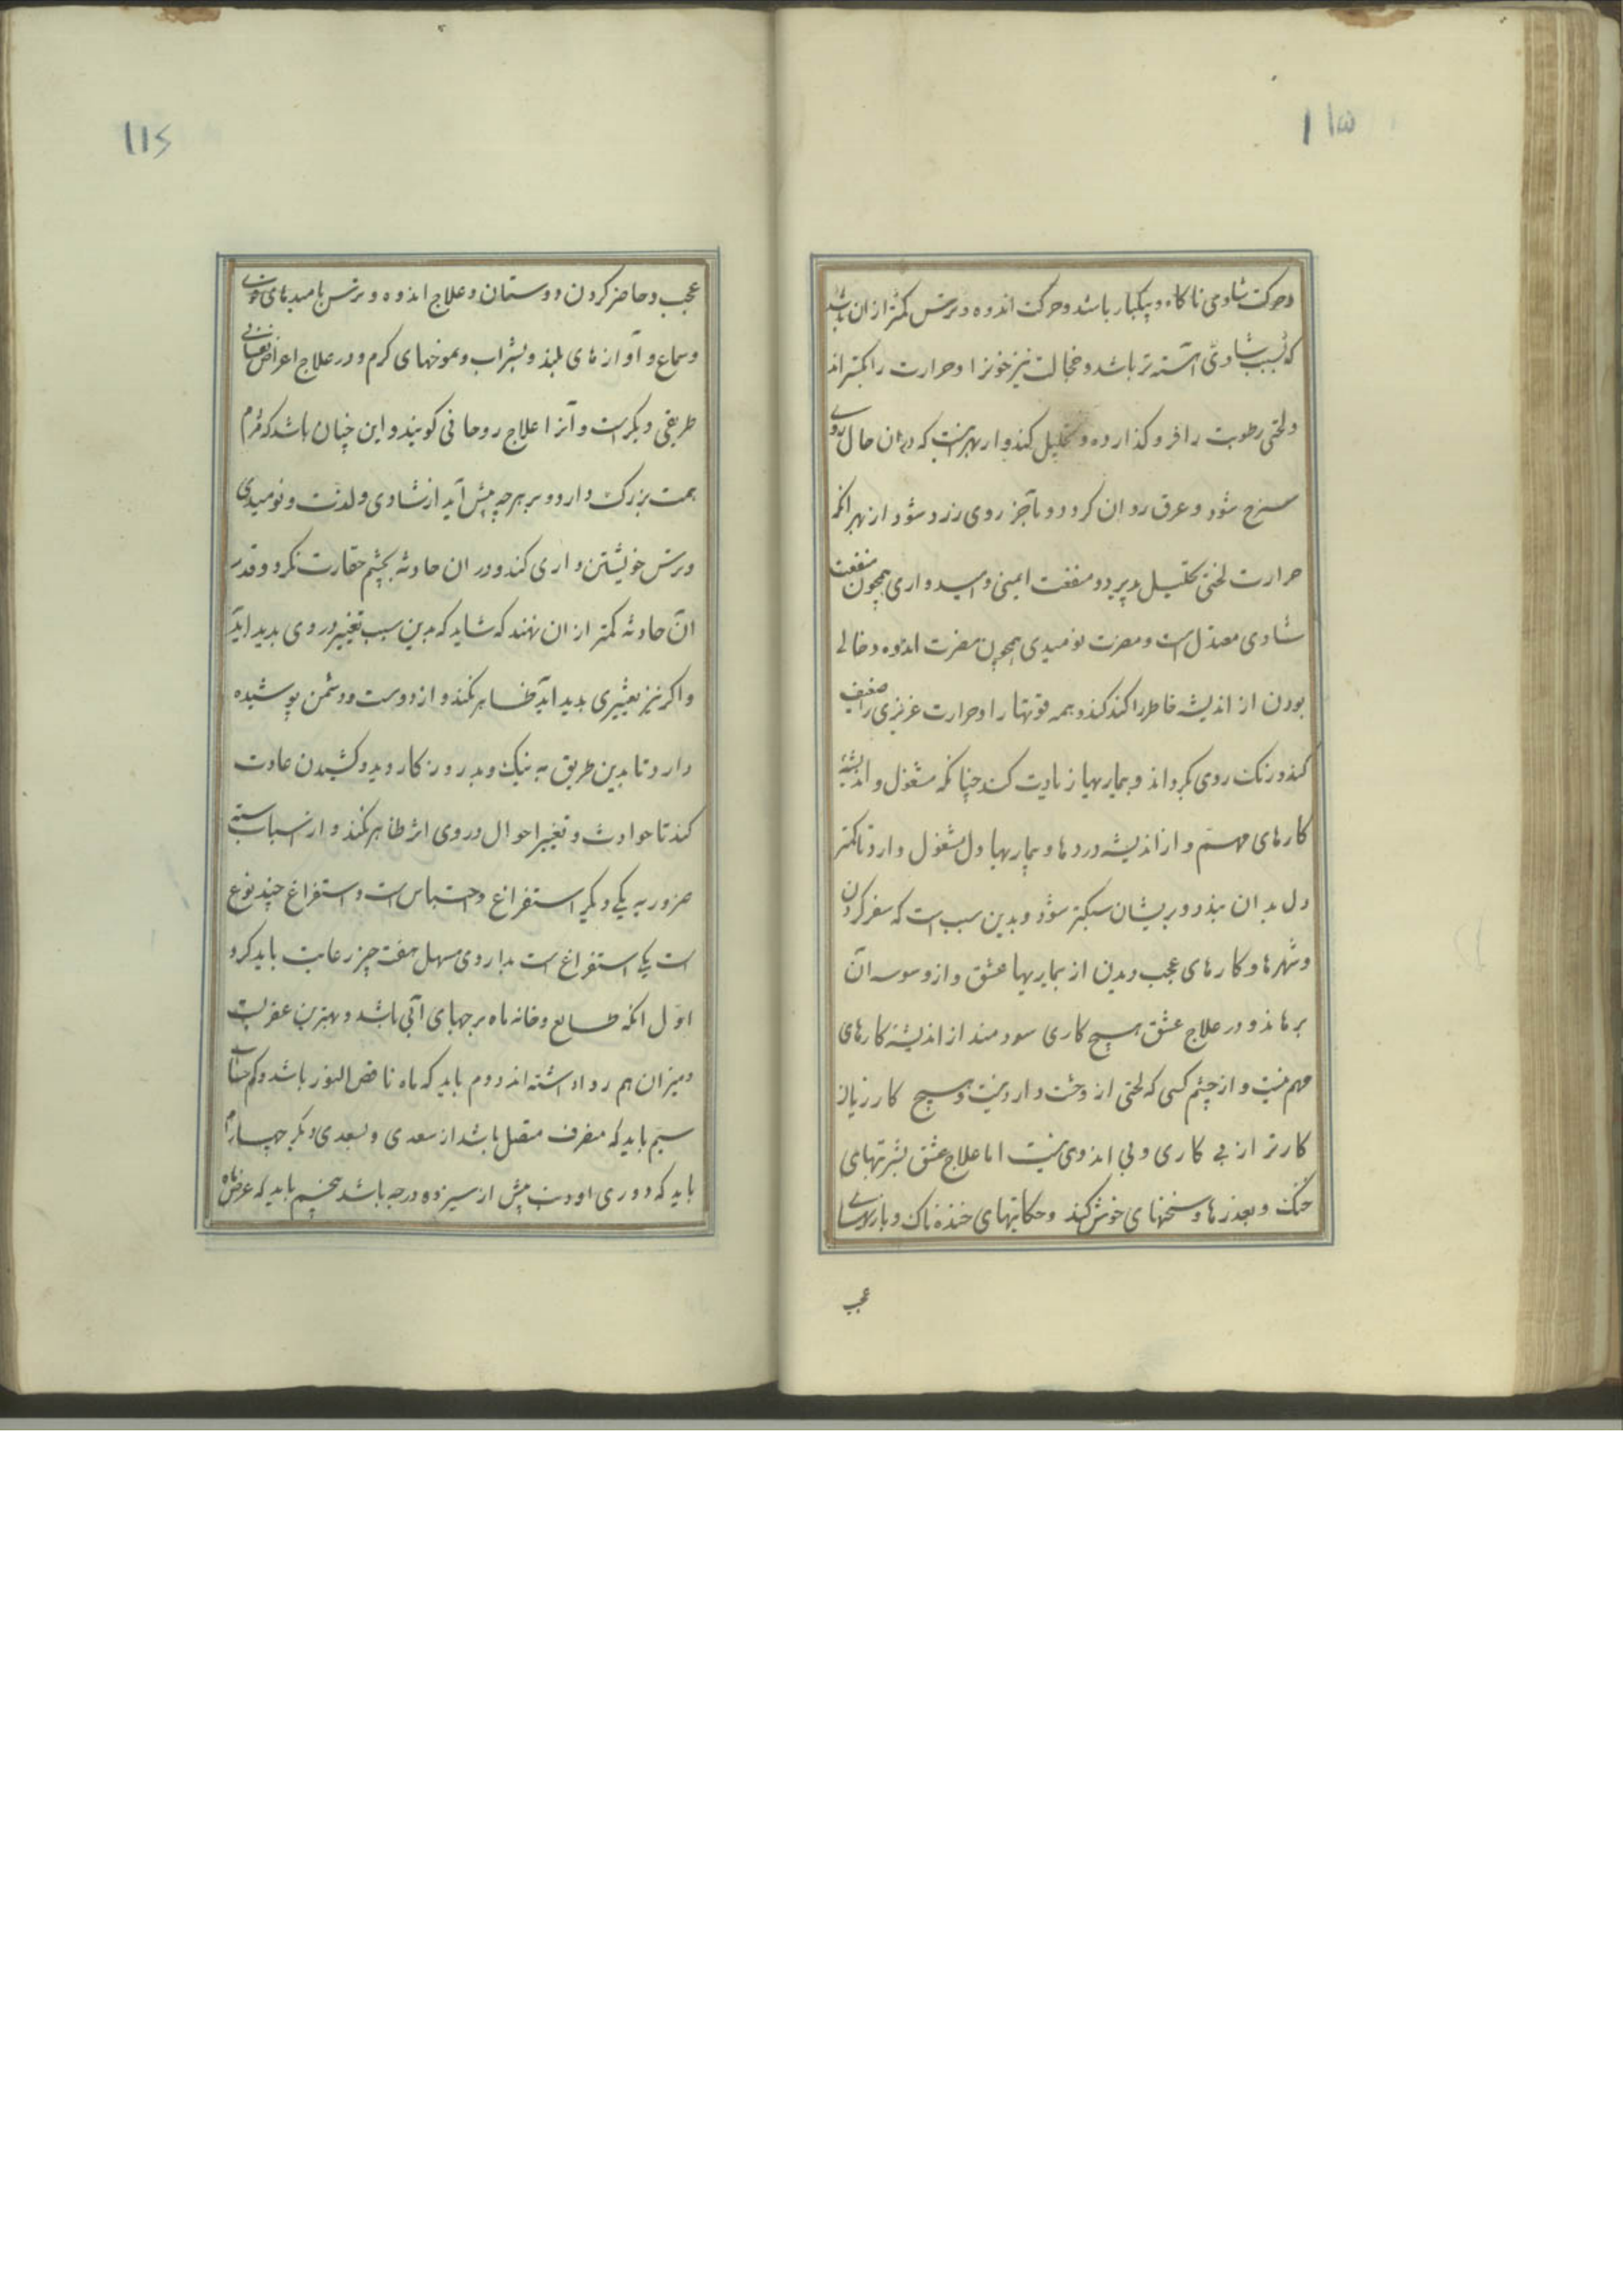 ۱۱۵
وحرکت شادی ناکاه وبیکبار باشد وحرکت اندوه وترس کمتر ازان باشد
که بسبب شادی آهسته تر باشد وخجالت نیز خونرا وحرارت را بکستراند
ولختی رطوبت را فرو کذارد و تحلیل کند واز بهر اینست که دران حال روی
سرخ شود وعرق روان کردد وبآخر روی زرد شود از بهر انکه
حرارت لختی تحلیل پدیرد ومنفعت ایمنی وامیدواری همچون منفعت
شادی معتدل است ومضرت نومیدی همچون مضرت اندوه وخالی
بودن از اندیشه خاطر را کند کند وهمه قوتها را وحرارت غریزی را ضعیف
کند ورنک روی بکرداند وبیماریها زیادت کند چنانکه مشغول واندیشهٔ
کارهای مهم واز اندیشه دردها وبیماریها دل مشغول دارد تا کمتر
دل بدان نپذرد وبریشان سبکتر شود وبدین سبب است که سفر کردن
وشهرها وکارهای عجب دیدن از بیماریها عشق واز وسوسه آن
برهاند ودر علاج عشق هیچ کاری سودمند از اندیشهٔ کارهای
مهم نیست واز چشم کسی که لختی از وحشت دارد نیست وهیچ کار زیان
کارتر از بی کاری وبی اندوی نیست اما علاج عشق بشربتهای
خنک وبعذرها وسخنهای خوش کنند وحکایتهای خنده ناک وبازیهای
عجب
۱۱۶
عجب وحاضر کردن دوستان وعلاج اندوه وترس بامیدهای خوش
وسماع و آوازهای بلند وبشراب وبموخهای کرم ودر علاج اعراض نفسانی
طریقی دیکر است وآنرا علاج روحانی کویند واین چنان باشد که مردم
همت بزرک دارد وبر هرچه پیش آید از شادی ولذت ونومیدی
وترس خویشتن داری کند ودر ان حادثه بچشم حقارت نکرد وقدر
آن حادثه کمتر از ان نهند که شاید که بدین سبب تغییر در وی بدید اید
واکر نیز تغییری بدید آید ظاهر نکند واز دوست ودشمن پوشیده
دارد تا بدین طریق به نیک وبد روزکار دیدو کشیدن عادت
کند تا حوادث وتغییر احوال در وی اثر ظاهر نکند واز اسباب سته
ضروریه یکی دیکر استفراغ واحتباس است واستفراغ چند نوع
است یکی استفراغ است بداروی مسهل هفت چیز رعایت باید کرد
اول انکه طالع وخانه ماه برجهای آبی باشد وبهترین عقربست
ومیزان هم روا داشته اند دوم باید که ماه ناقص النور باشد وکم حساب
سیم باید که منصرف متصل باشد از سعدی وبسعدی دیکر چهارم
باید که دوری او دنب بیش از سیزده درجه باشد پنجم باید که عرض ماه